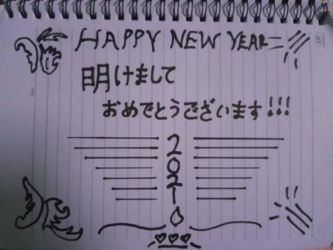 HAPPY NEW YEAR
明けまして
おめでとうございます!!!
2
0
2
1
0